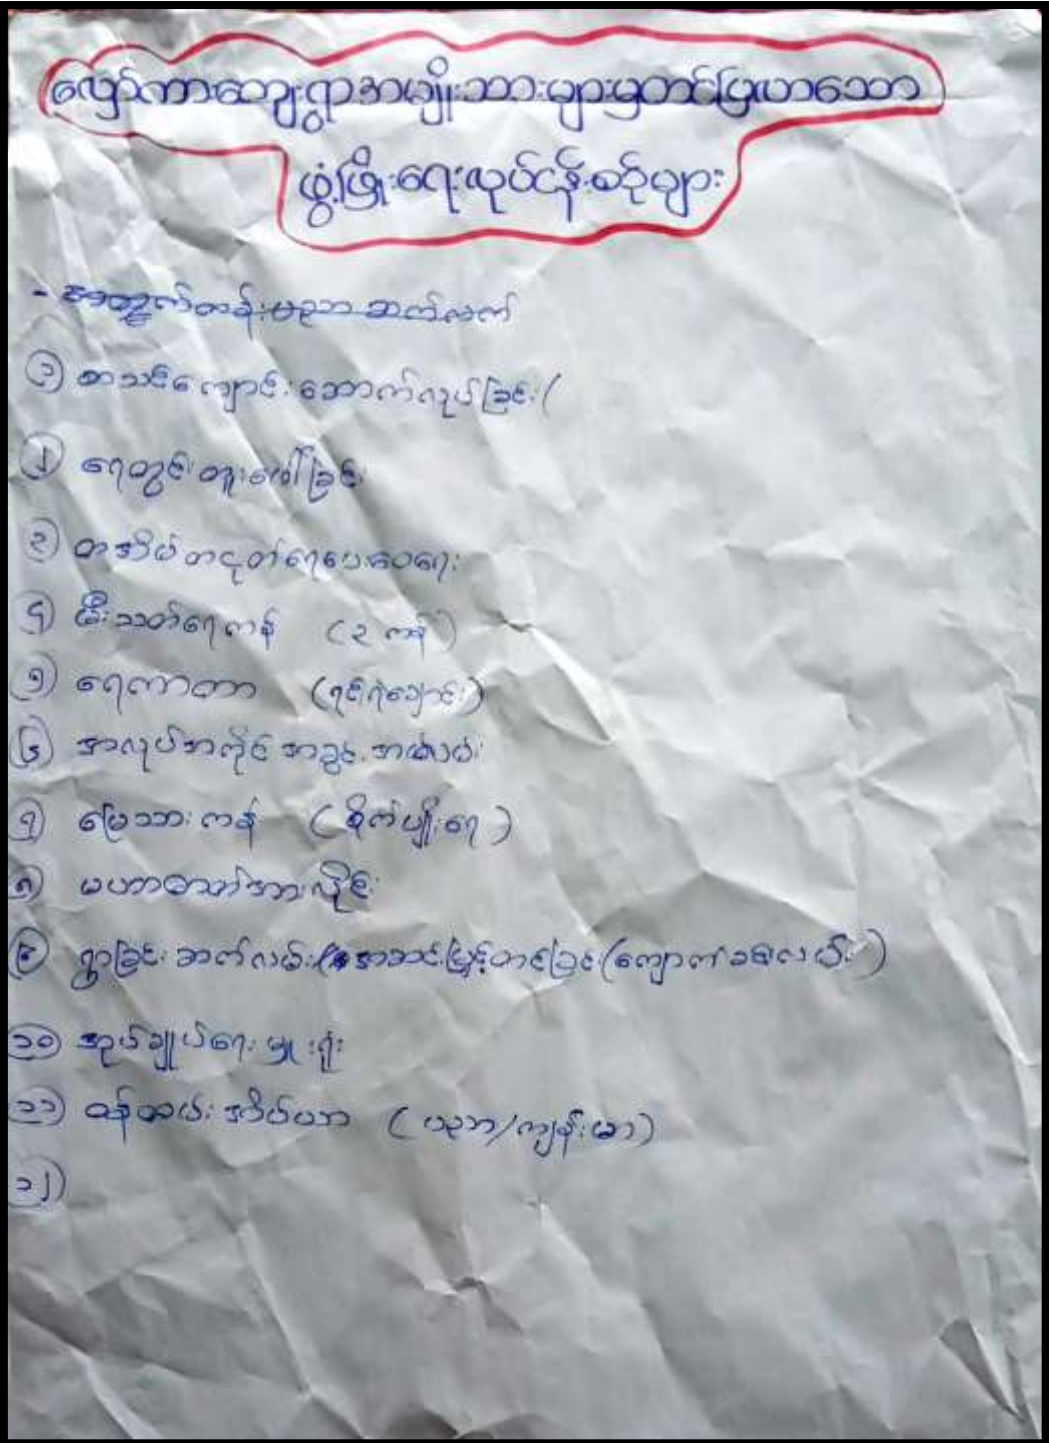 လျှော်ကားကျေးရွာအမျိုးသားများမှတင်ပြလာသော
ဖွံ့ဖြိုးရေးလုပ်ငန်းစဉ်များ
- အတွက်တန်းပညာ ဆက်လက်
၁ စာသင်ကျောင်း ဆောက်လုပ်ခြင်း (
၂ ရေတွင်း တူးဖော်ခြင်း
၃ တအိမ်တငုတ်ရေပေးဝေရေး
၄ မီးသတ်ရေကန် (၃ ကန်)
၅ ရေကာတာ
၆ အလုပ်အကိုင် အခွင့် အလမ်း
၇ မြေသားကန် (စိုက်ပျိုးရေ)
၈ မဟာဓာတ်အားလိုင်း
၉ ရွာခြင်းဆက်လမ်း အဆင့်မြှင့်တင်ခြင်း (ကျောက်ခင်းလမ်း)
၁၀ အုပ်ချုပ်ရေးမှူးရုံး
၁၁ ဝန်ထမ်းအိမ်ယာ (ပညာ/ကျန်းမာ)
၁၂